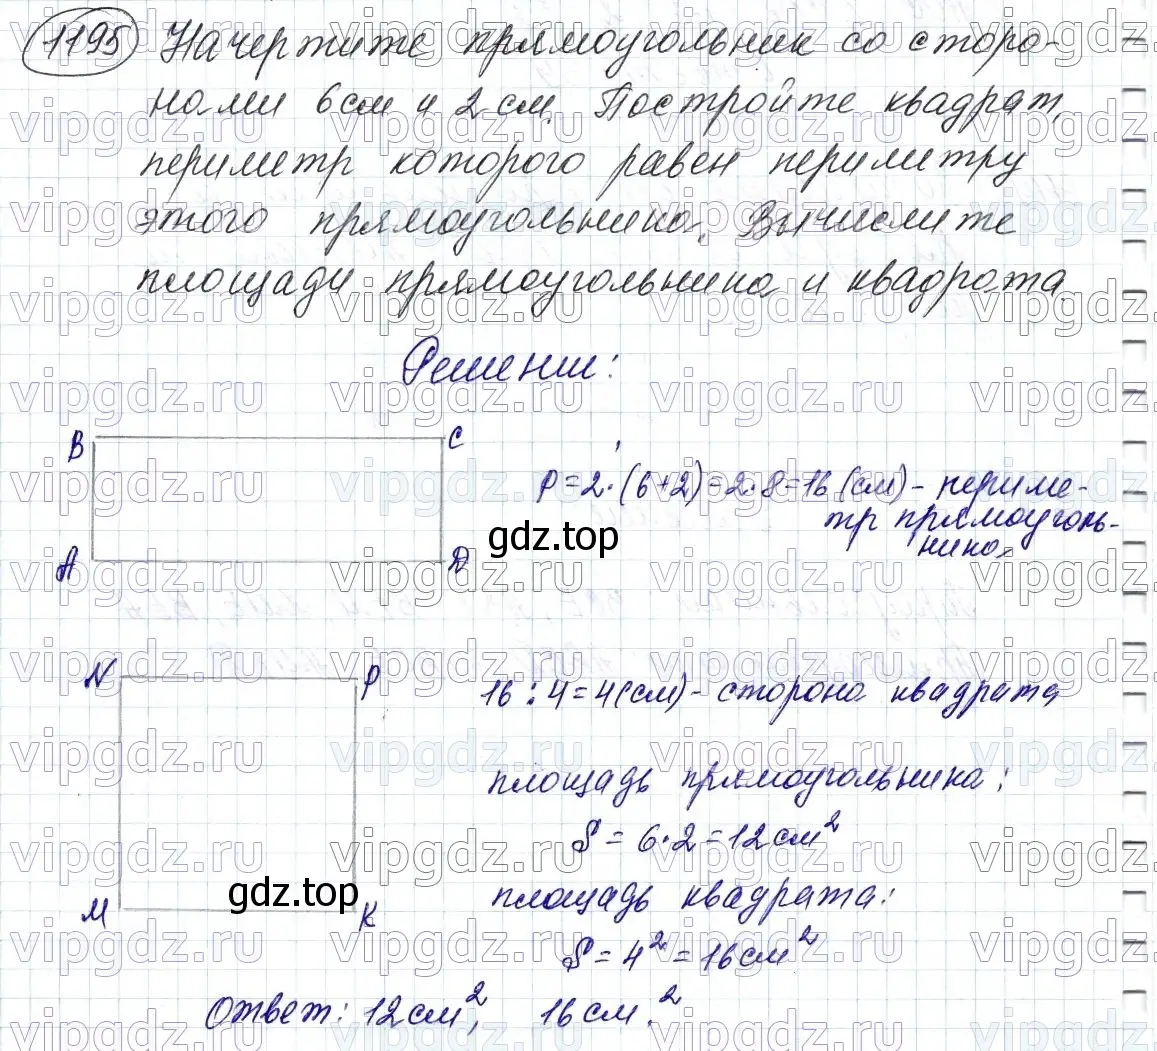 1195 Начертите прямоугольник со сторо-
нами 6 см и 2 см. Постройте квадрат,
периметр которого равен периметру
этого прямоугольника. Вычислите
площади прямоугольника и квадрата.
Решение:
B C
P = 2·(6+2) = 2·8 = 16 (см) - периме-
тр прямоуголь-
ника.
gdz.top
A D
N P
16 : 4 = 4 (см) - сторона квадрата
площадь прямоугольника:
S = 6·2 = 12 см²
gdz.top
площадь квадрата:
M K
S = 4² = 16 см²
Ответ: 12 см², 16 см.²
vipgdz.ru